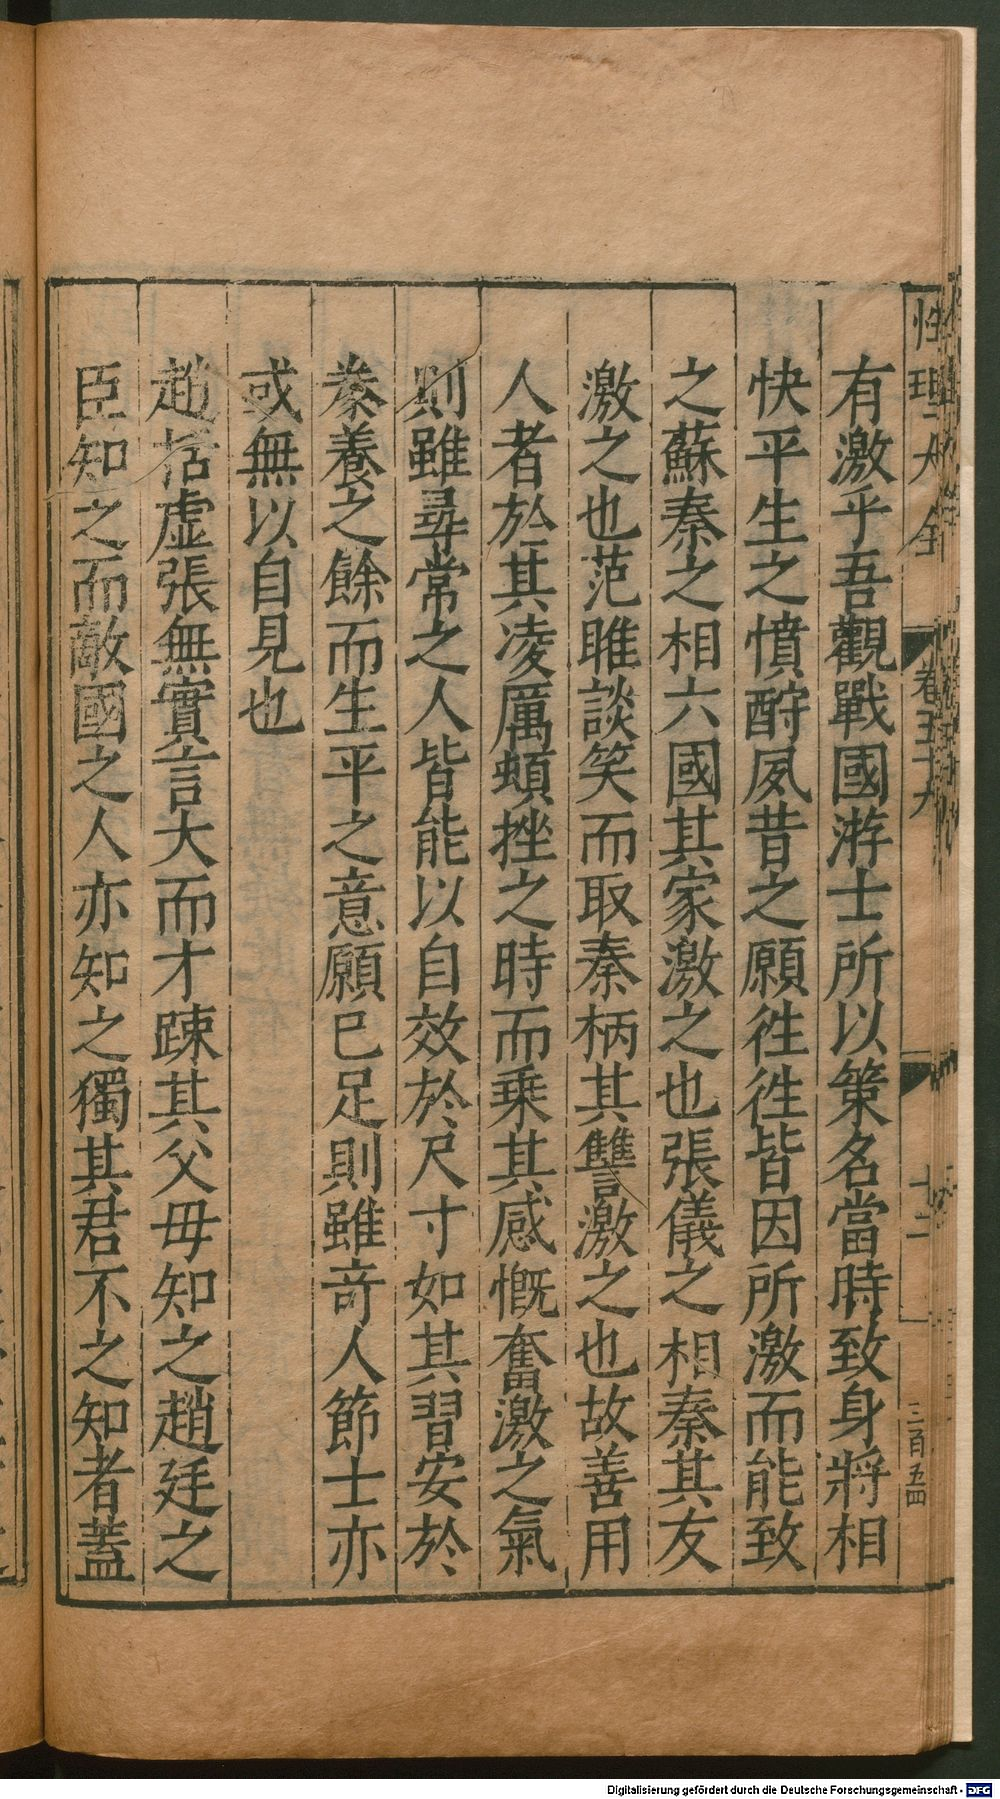 性理大全 卷五十九 十二 三百五四
有激乎吾觀戰國游士所以策名當時致身將相
快平生之憤酧夙昔之願徃徃皆因所激而能致
之蘇秦之相六國其家激之也張儀之相秦其友
激之也范雎談笑而取秦柄其讐激之也故善用
人者於其凌厲頓挫之時而乗其感慨奮激之氣
則雖尋常之人皆能以自效於尺寸如其習安於
豢養之餘而生平之意願已足則雖竒人節士亦
或無以自見也
趙括虛張無實言大而才踈其父毋知之趙廷之
臣知之而敵國之人亦知之獨其君不之知者蓋
Digitalisierung gefördert durch die Deutsche Forschungsgemeinschaft - DFG